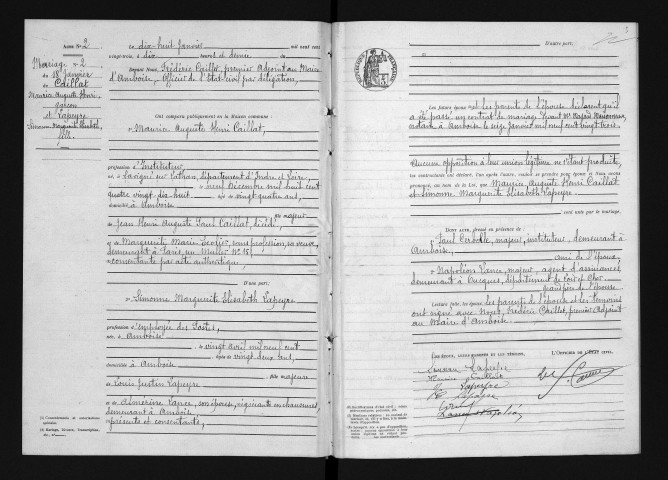 Acte N° 2
Mariage N° 2
du 18 Janvier
Caillat
Maurice Auguste Henri
garçon
et Lapeyre
Simonne Marguerite Elisabeth
fille
Le dix-huit Janvier mil neuf cent
vingt-trois, à dix heures et demie
Devant Nous, Frédéric Caillet, premier Adjoint au Maire
d'Amboise, Officier de l'Etat-civil par délégation,
Ont comparu publiquement en la Maison commune :
Maurice Auguste Henri Caillat,
profession d'Instituteur
né à Savigné sur Lathan, département d'Indre et Loire
le neuf Décembre mil huit cent
quatre vingt dix huit, âgé de vingt quatre ans,
domicilié à Amboise
fils majeur
de Jean Henri Auguste Paul Caillat, décédé,
et de Marguerite Marie
sans profession, sa veuve,
demeurant à Paris, rue
consentante par acte authentique,
D'une part ;
et Simonne Marguerite Elisabeth Lapeyre
profession d'employée des Postes,
née à Amboise
le vingt Avril mil neuf cent
âgée de vingt deux ans,
domiciliée à Amboise
fille majeure
de Louis Justin Lapeyre
et de
Lance, son épouse, négociants en chaussures,
demeurant à Amboise
présents et consentants,
D'autre part ;
Les futurs époux et les parents de l'épouse déclarent qu'il
a été passé un contrat de mariage devant Me
notaire à Amboise le seize Janvier mil neuf cent vingt trois.
Aucune opposition à leur union légitime ne s'étant produite,
les contractants ont déclaré, l'un après l'autre, vouloir se prendre pour époux et Nous avons
prononcé, au nom de la Loi, que Maurice Auguste Henri Caillat
et Simonne Marguerite Elisabeth Lapeyre
sont unis par le mariage.
Dont acte, dressé en présence de :
Paul
majeur, instituteur, demeurant à
Amboise,
ami de l'époux,
et Napoléon Lance, majeur, agent d'assurances
demeurant à Ouques, département de Loir et Cher
de l'épouse.
Lecture faite, les époux, les parents de l'épouse et les témoins
ont signé avec Nous, Frédéric Caillet, premier Adjoint
au Maire d'Amboise.
Les époux, leurs parents et les témoins,
L'Officier de l'État civil,